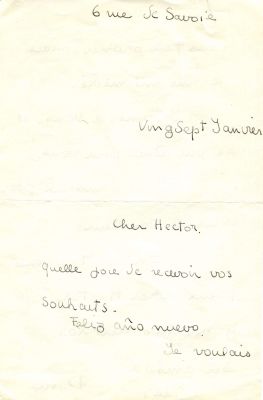 6 rue de Savoie
Vingsept Janvier
Cher Hector.
quelle joie de recevoir vos
souhaits.
Feliz año nuevo.
Je voulais